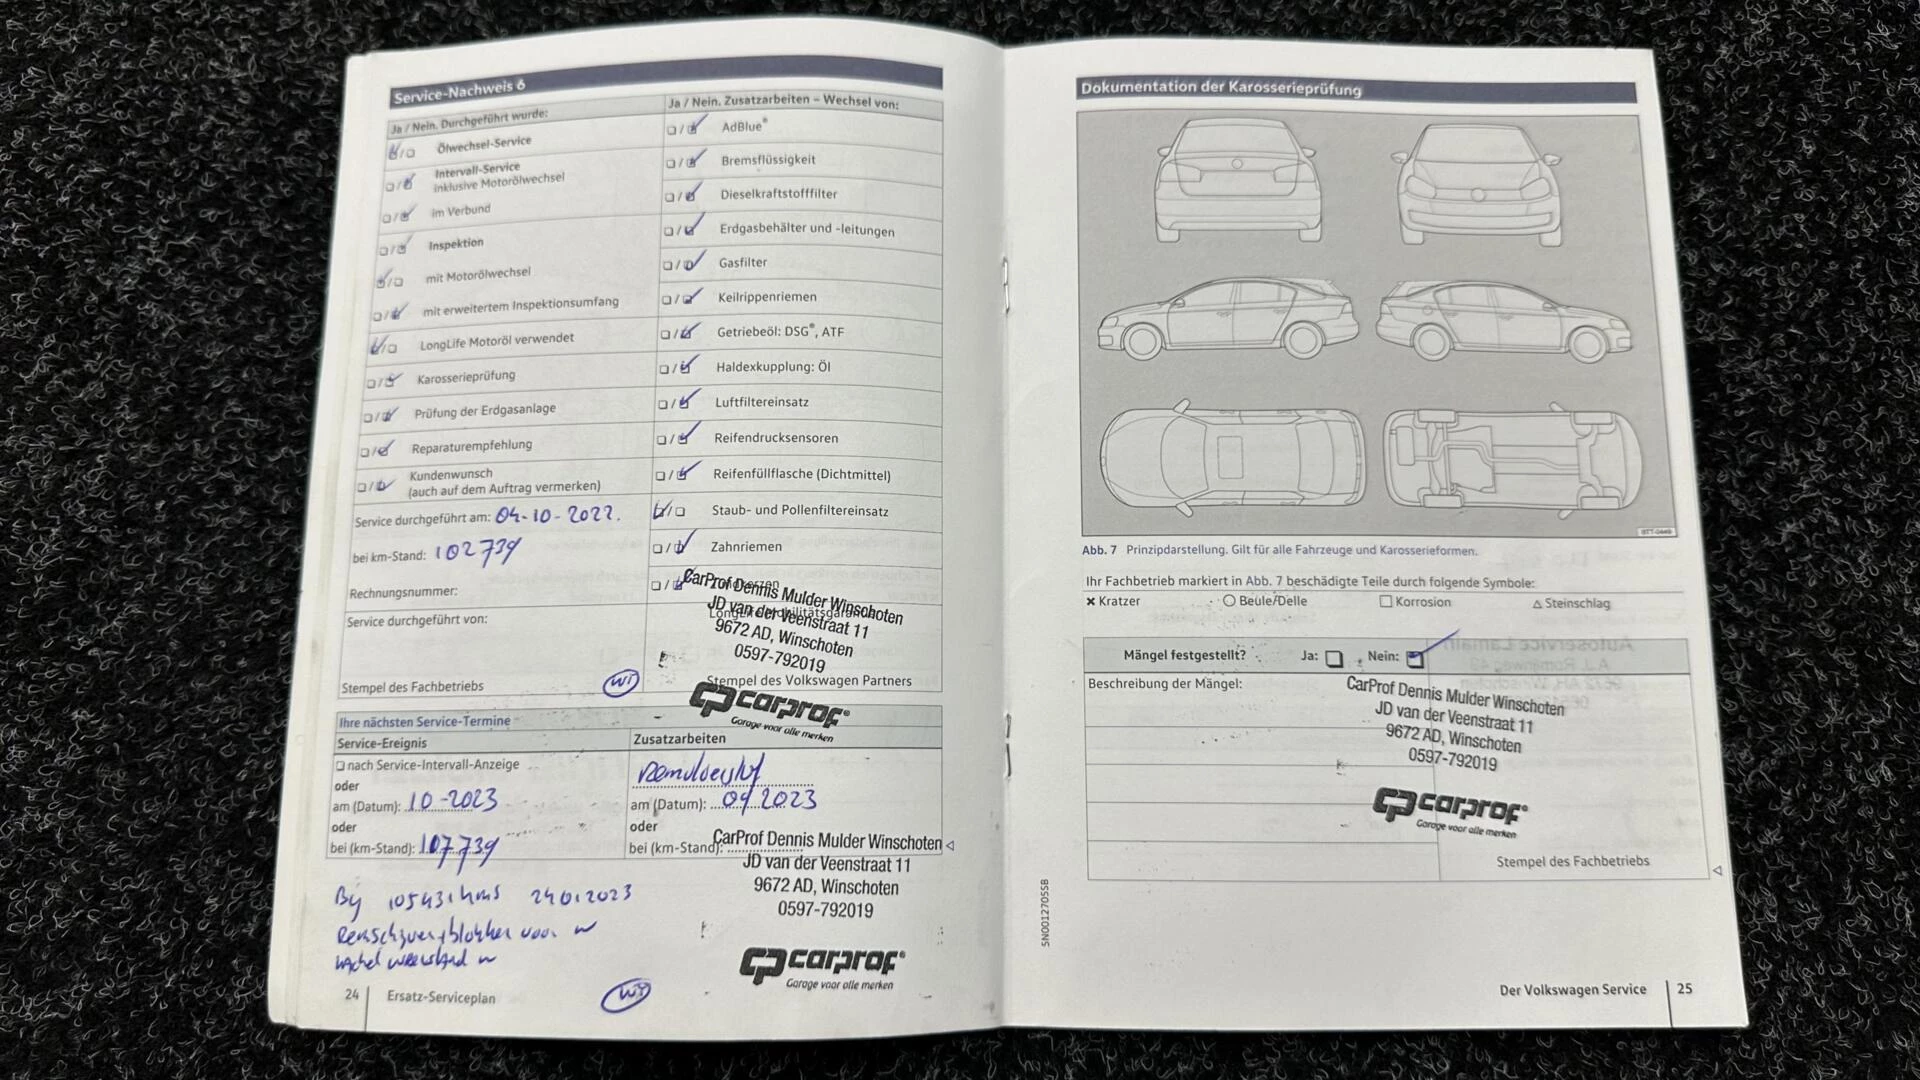 Service-Nachweis 6
Ja / Nein. Durchgeführt wurde:
Ölwechsel-Service
Intervall-Service
inklusive Motorölwechsel
im Verbund
Inspektion
mit Motorölwechsel
mit erweitertem Inspektionsumfang
LongLife Motoröl verwendet
Karosserieprüfung
Prüfung der Erdgasanlage
Reparaturempfehlung
Kundenwunsch
(auch auf dem Auftrag vermerken)
Service durchgeführt am: 04-10-2022.
bei km-Stand: 102739
Rechnungsnummer:
Service durchgeführt von:
Stempel des Fachbetriebs
Ja / Nein. Zusatzarbeiten – Wechsel von:
AdBlue®
Bremsflüssigkeit
Dieselkraftstofffilter
Erdgasbehälter und -leitungen
Gasfilter
Keilrippenriemen
Getriebeöl: DSG®, ATF
Haldexkupplung: Öl
Luftfiltereinsatz
Reifendrucksensoren
Reifenfüllflasche (Dichtmittel)
Staub- und Pollenfiltereinsatz
Zahnriemen
CarProf Dennis Mulder Winschoten
JD van der Veenstraat 11
9672 AD, Winschoten
0597-792019
Stempel des Volkswagen Partners
carprof®
Garage voor alle merken
Ihre nächsten Service-Termine
Service-Ereignis
nach Service-Intervall-Anzeige
oder
am (Datum): 10-2023
oder
bei (km-Stand): 107739
Zusatzarbeiten
am (Datum): 04 2023
oder
bei (km-Stand):
CarProf Dennis Mulder Winschoten
JD van der Veenstraat 11
9672 AD, Winschoten
0597-792019
carprof®
Garage voor alle merken
By 105431 kms 24012023
voor
24 Ersatz-Serviceplan
Dokumentation der Karosserieprüfung
Abb. 7 Prinzipdarstellung. Gilt für alle Fahrzeuge und Karosserieformen.
Ihr Fachbetrieb markiert in Abb. 7 beschädigte Teile durch folgende Symbole:
× Kratzer ○ Beule/Delle □ Korrosion △ Steinschlag
Mängel festgestellt? Ja: Nein:
Beschreibung der Mängel:
CarProf Dennis Mulder Winschoten
JD van der Veenstraat 11
9672 AD, Winschoten
0597-792019
carprof®
Garage voor alle merken
Stempel des Fachbetriebs
5N0012705SB
Der Volkswagen Service 25